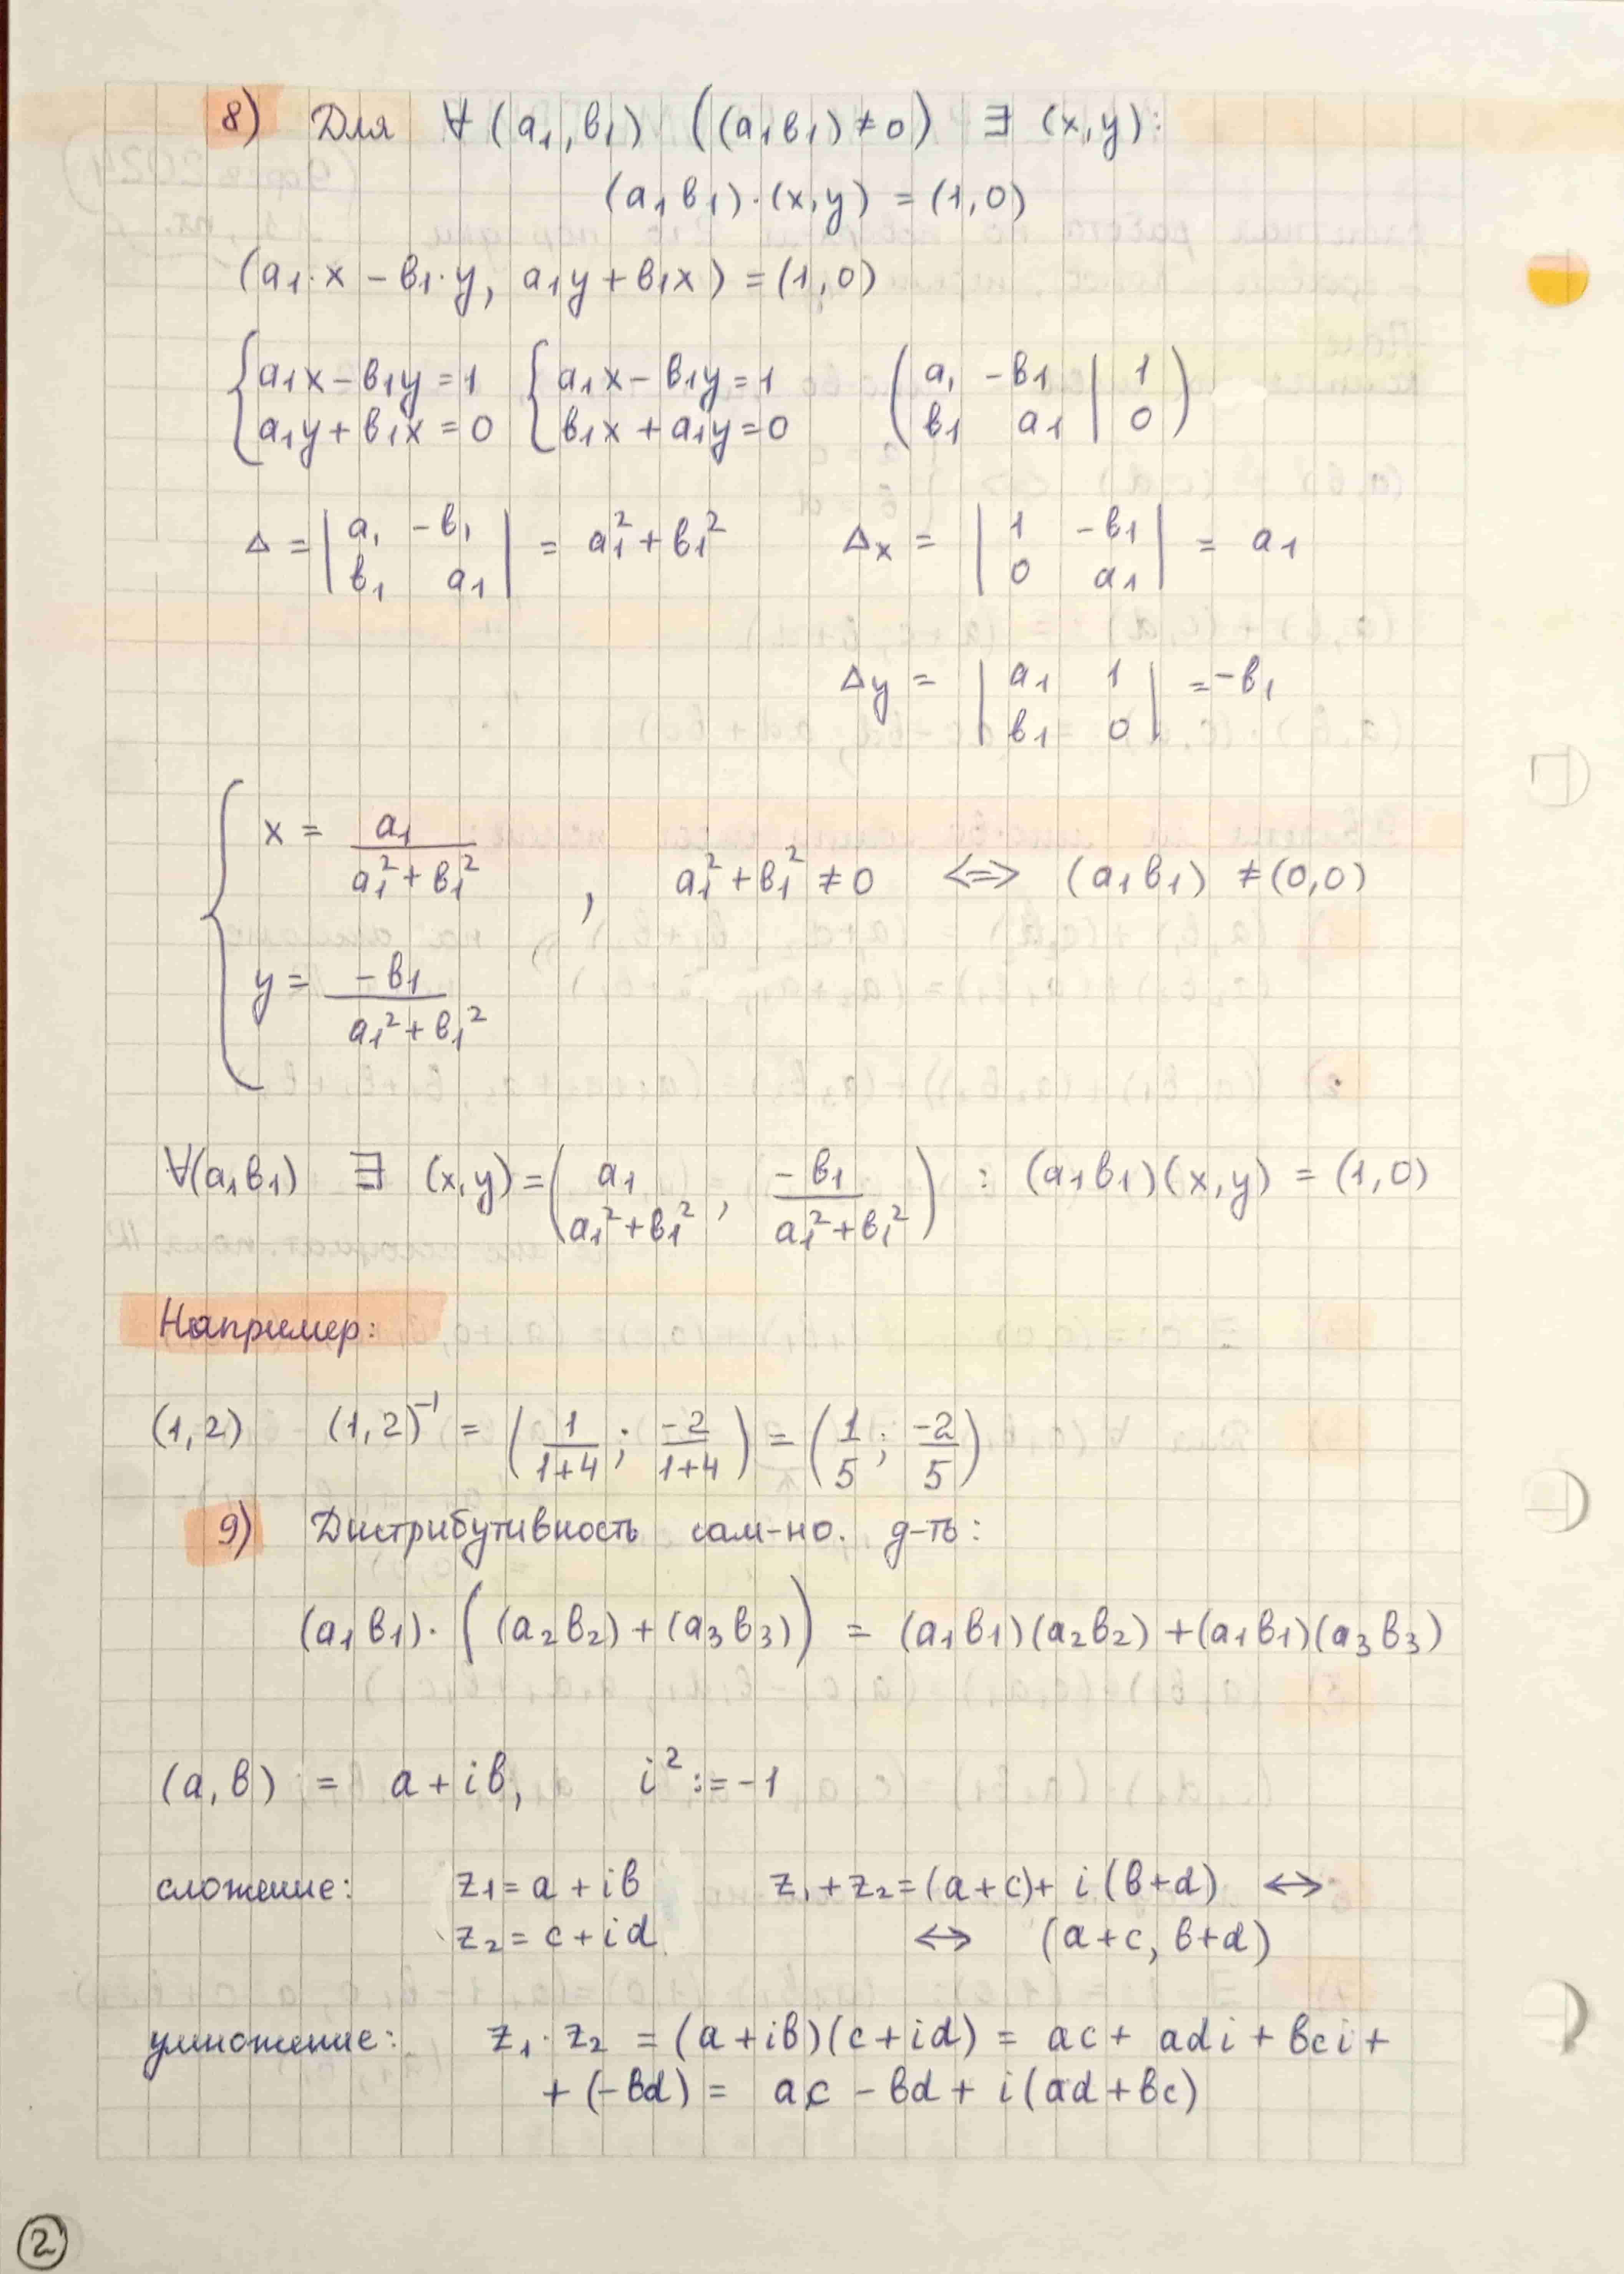 8) Для ∀ (a₁, b₁) ((a₁b₁) ≠ 0) ∃ (x, y):
(a₁ b₁) · (x, y) = (1, 0)
(a₁ · x − b₁ · y, a₁y + b₁x) = (1, 0)
{ a₁x − b₁y = 1 { a₁x − b₁y = 1 ( a₁ −b₁ | 1 )
{ a₁y + b₁x = 0 { b₁x + a₁y = 0 ( b₁ a₁ | 0 )
Δ = | a₁ −b₁ | = a₁² + b₁² Δx = | 1 −b₁ | = a₁
| b₁ a₁ | | 0 a₁ |
Δy = | a₁ 1 | = −b₁
| b₁ 0 |
{ x = a₁ / (a₁² + b₁²) , a₁² + b₁² ≠ 0 ⟺ (a₁ b₁) ≠ (0, 0)
{ y = −b₁ / (a₁² + b₁²)
∀(a₁b₁) ∃ (x, y) = ( a₁ / (a₁² + b₁²) , −b₁ / (a₁² + b₁²) ) : (a₁ b₁)(x, y) = (1, 0)
Например:
(1, 2) (1, 2)⁻¹ = ( 1/(1+4) ; −2/(1+4) ) = ( 1/5 ; −2/5 )
9) Дистрибутивность сам-но. д-ть:
(a₁ b₁) · ((a₂ b₂) + (a₃ b₃)) = (a₁ b₁)(a₂ b₂) + (a₁ b₁)(a₃ b₃)
(a, b) = a + ib, i² := −1
сложение: z₁ = a + ib z₁ + z₂ = (a + c) + i (b + d) ↔
z₂ = c + id ↔ (a + c, b + d)
умножение: z₁ · z₂ = (a + ib)(c + id) = ac + adi + bci +
+ (−bd) = ac − bd + i(ad + bc)
2